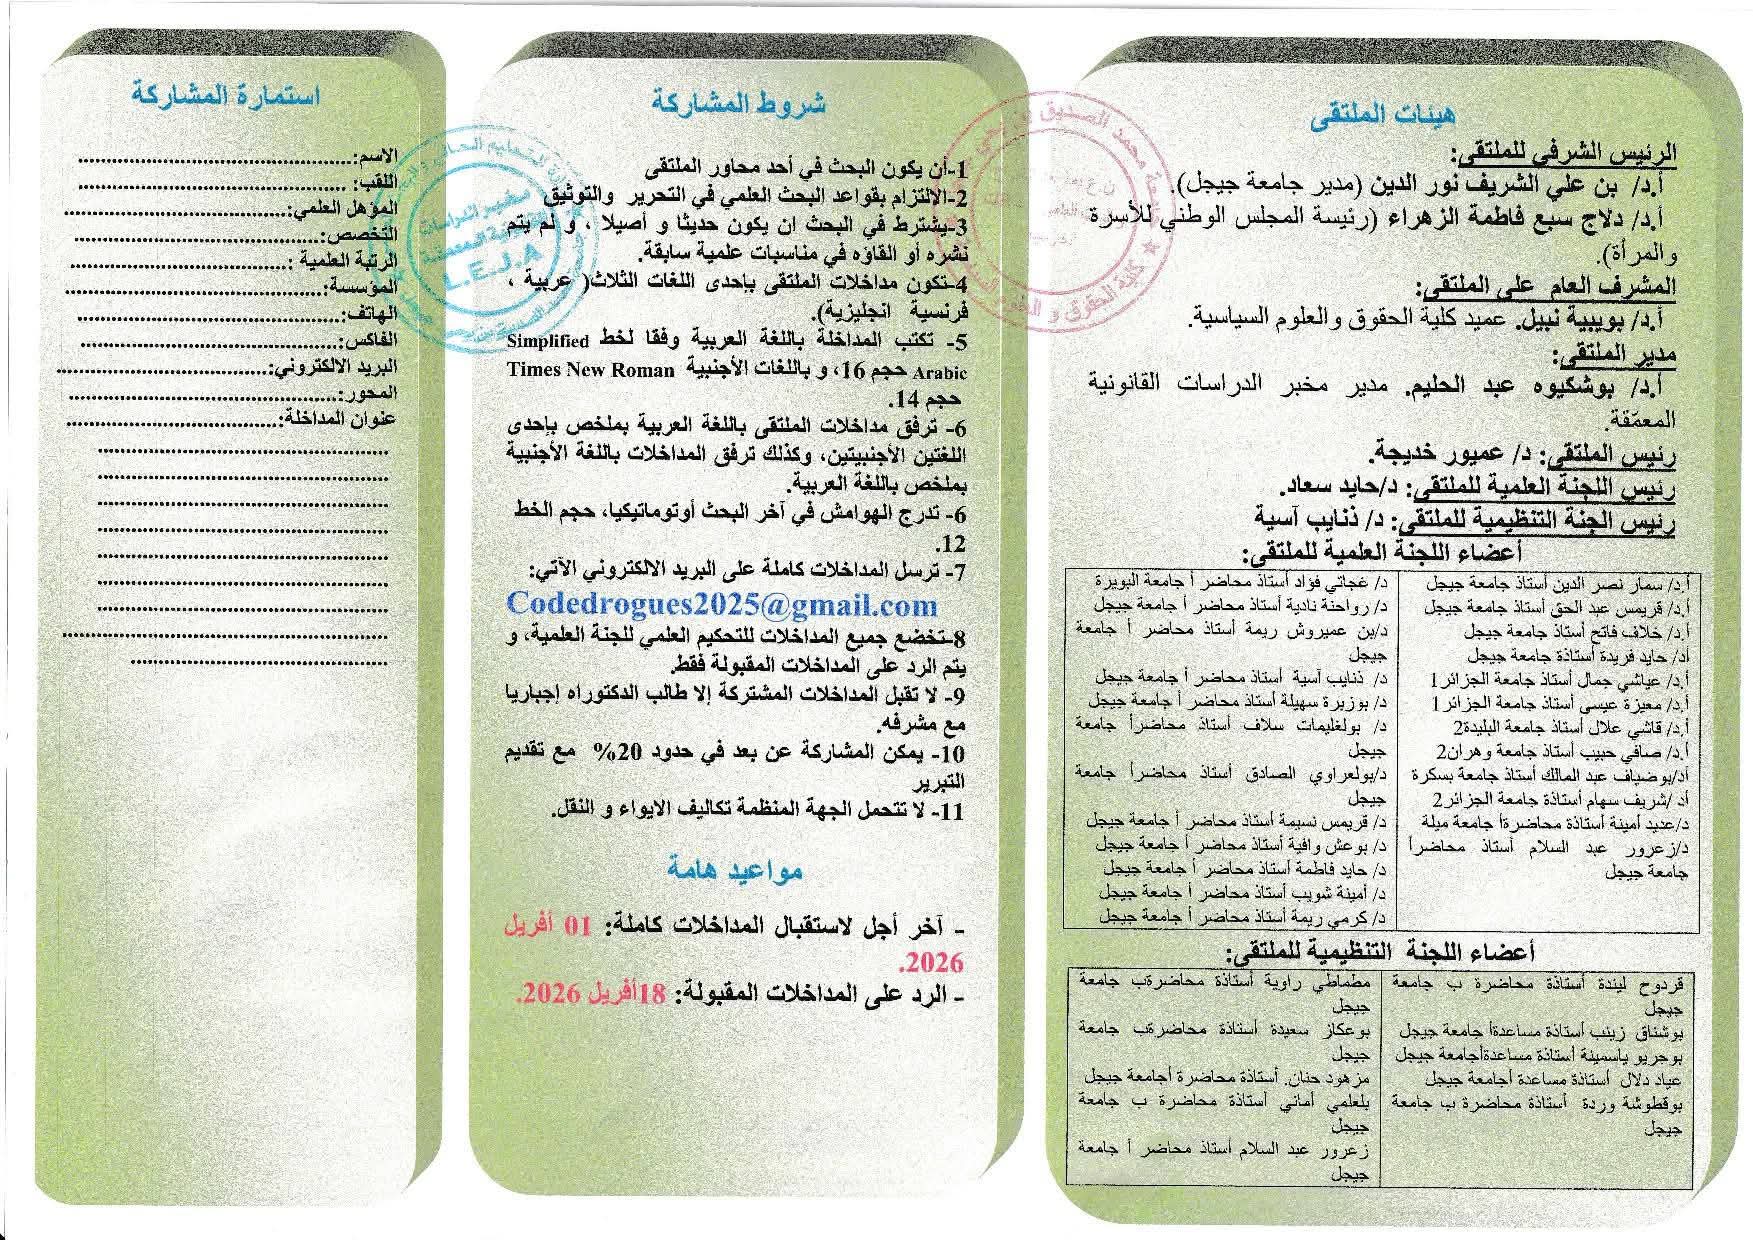 هيئات الملتقى
الرئيس الشرفي للملتقى:
أ.د/ بن علي الشريف نور الدين (مدير جامعة جيجل).
أ.د/ دلاج سبع فاطمة الزهراء (رئيسة المجلس الوطني للأسرة
والمرأة).
المشرف العام على الملتقى:
أ.د/ بوبية نبيل. عميد كلية الحقوق والعلوم السياسية.
مدير الملتقى:
أ.د/ بوشكيوه عبد الحليم. مدير مخبر الدراسات القانونية
المعمّقة.
رئيس الملتقى: د/ عميور خديجة.
رئيس اللجنة العلمية للملتقى: د/حايد سعاد.
رئيس الجنة التنظيمية للملتقى: د/ ذنايب آسية
أعضاء اللجنة العلمية للملتقى:
أ.د/ سمار نصر الدين أستاذ جامعة جيجل
أ.د/ قريمس عبد الحق أستاذ جامعة جيجل
أ.د/ خلاف فاتح أستاذ جامعة جيجل
أد/ حايد فريدة أستاذة جامعة جيجل
أ.د/ عياشي جمال أستاذ جامعة الجزائر1
أ.د/ معيزة عيسى أستاذ جامعة الجزائر1
أ.د/ قاشي علال أستاذ جامعة البليدة2
أ.د/ صافي حبيب أستاذ جامعة وهران2
أد/بوضياف عبد المالك أستاذ جامعة بسكرة
أد /شريف سهام أستاذة جامعة الجزائر2
د/عديد أمينة أستاذة محاضرةأ جامعة ميلة
د/زعرور عبد السلام أستاذ محاضرأ
جامعة جيجل
د/ عجاتي فؤاد أستاذ محاضر أ جامعة البويرة
د/ رواحنة نادية أستاذ محاضر أ جامعة جيجل
د/بن عميروش ريمة أستاذ محاضر أ جامعة
جيجل
د/ ذنايب آسية أستاذ محاضر أ جامعة جيجل
د/ بوزيرة سهيلة أستاذ محاضر أ جامعة جيجل
د/ بولغليمات سلاف أستاذ محاضرأ جامعة
جيجل
د/بولعراوي الصادق أستاذ محاضرأ جامعة
جيجل
د/ قريمس نسيمة أستاذ محاضر أ جامعة جيجل
د/ بوعش وافية أستاذ محاضر أ جامعة جيجل
د/ حايد فاطمة أستاذ محاضر أ جامعة جيجل
د/ أمينة شويب أستاذ محاضر أ جامعة جيجل
د/ كرمي ريمة أستاذ محاضر أ جامعة جيجل
أعضاء اللجنة التنظيمية للملتقى:
قردوح ليندة أستاذة محاضرة ب جامعة
جيجل
بوشناق زينب أستاذة مساعدةأ جامعة جيجل
بوجريو ياسمينة أستاذة مساعدةأجامعة جيجل
عياد دلال أستاذة مساعدة أجامعة جيجل
بوقطوشة وردة أستاذة محاضرة ب جامعة
جيجل
مطماطي راوية أستاذة محاضرةب جامعة
جيجل
بوعكاز سعيدة أستاذة محاضرةب جامعة
جيجل
مزهود حنان. أستاذة محاضرة أجامعة جيجل
بلعلمي أماني أستاذة محاضرة ب جامعة
جيجل
زعرور عبد السلام أستاذ محاضر أ جامعة
جيجل
شروط المشاركة
1-أن يكون البحث في أحد محاور الملتقى
2-الالتزام بقواعد البحث العلمي في التحرير والتوثيق
3-يشترط في البحث ان يكون حديثا و أصيلا ، و لم يتم
نشره أو القاؤه في مناسبات علمية سابقة.
4-تكون مداخلات الملتقى بإحدى اللغات الثلاث( عربية ،
فرنسية انجليزية).
5- تكتب المداخلة باللغة العربية وفقا لخط Simplified
Arabic حجم 16، و باللغات الأجنبية Times New Roman
حجم 14.
6- ترفق مداخلات الملتقى باللغة العربية بملخص بإحدى
اللغتين الأجنبيتين، وكذلك ترفق المداخلات باللغة الأجنبية
بملخص باللغة العربية.
6- تدرج الهوامش في آخر البحث أوتوماتيكيا، حجم الخط
12.
7- ترسل المداخلات كاملة على البريد الالكتروني الآتي:
Codedrogues2025@gmail.com
8-تخضع جميع المداخلات للتحكيم العلمي للجنة العلمية، و
يتم الرد على المداخلات المقبولة فقط.
9- لا تقبل المداخلات المشتركة إلا طالب الدكتوراه إجباريا
مع مشرفه.
10- يمكن المشاركة عن بعد في حدود 20% مع تقديم
التبرير
11- لا تتحمل الجهة المنظمة تكاليف الايواء و النقل.
مواعيد هامة
- آخر أجل لاستقبال المداخلات كاملة: 01 أفريل
2026.
- الرد على المداخلات المقبولة: 18أفريل 2026.
استمارة المشاركة
الاسم:
اللقب:
المؤهل العلمي:
التخصص:
الرتبة العلمية :
المؤسسة:
الهاتف:
الفاكس:
البريد الالكتروني:
المحور:
عنوان المداخلة:
L.E.J.A